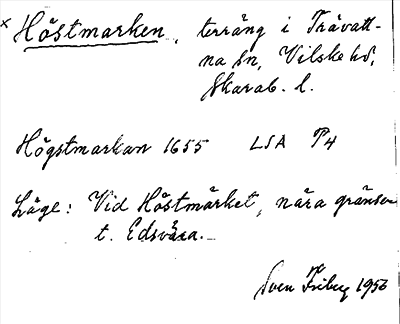 × Höstmarken, terräng i Trävatt-
na sn, Vilske hd,
Skarab. l.
Högstmarkan 1655 LSA P4
Läge: Vid Höstmärket, nära gränsen
t. Edsvära.
Sven Friberg 1956